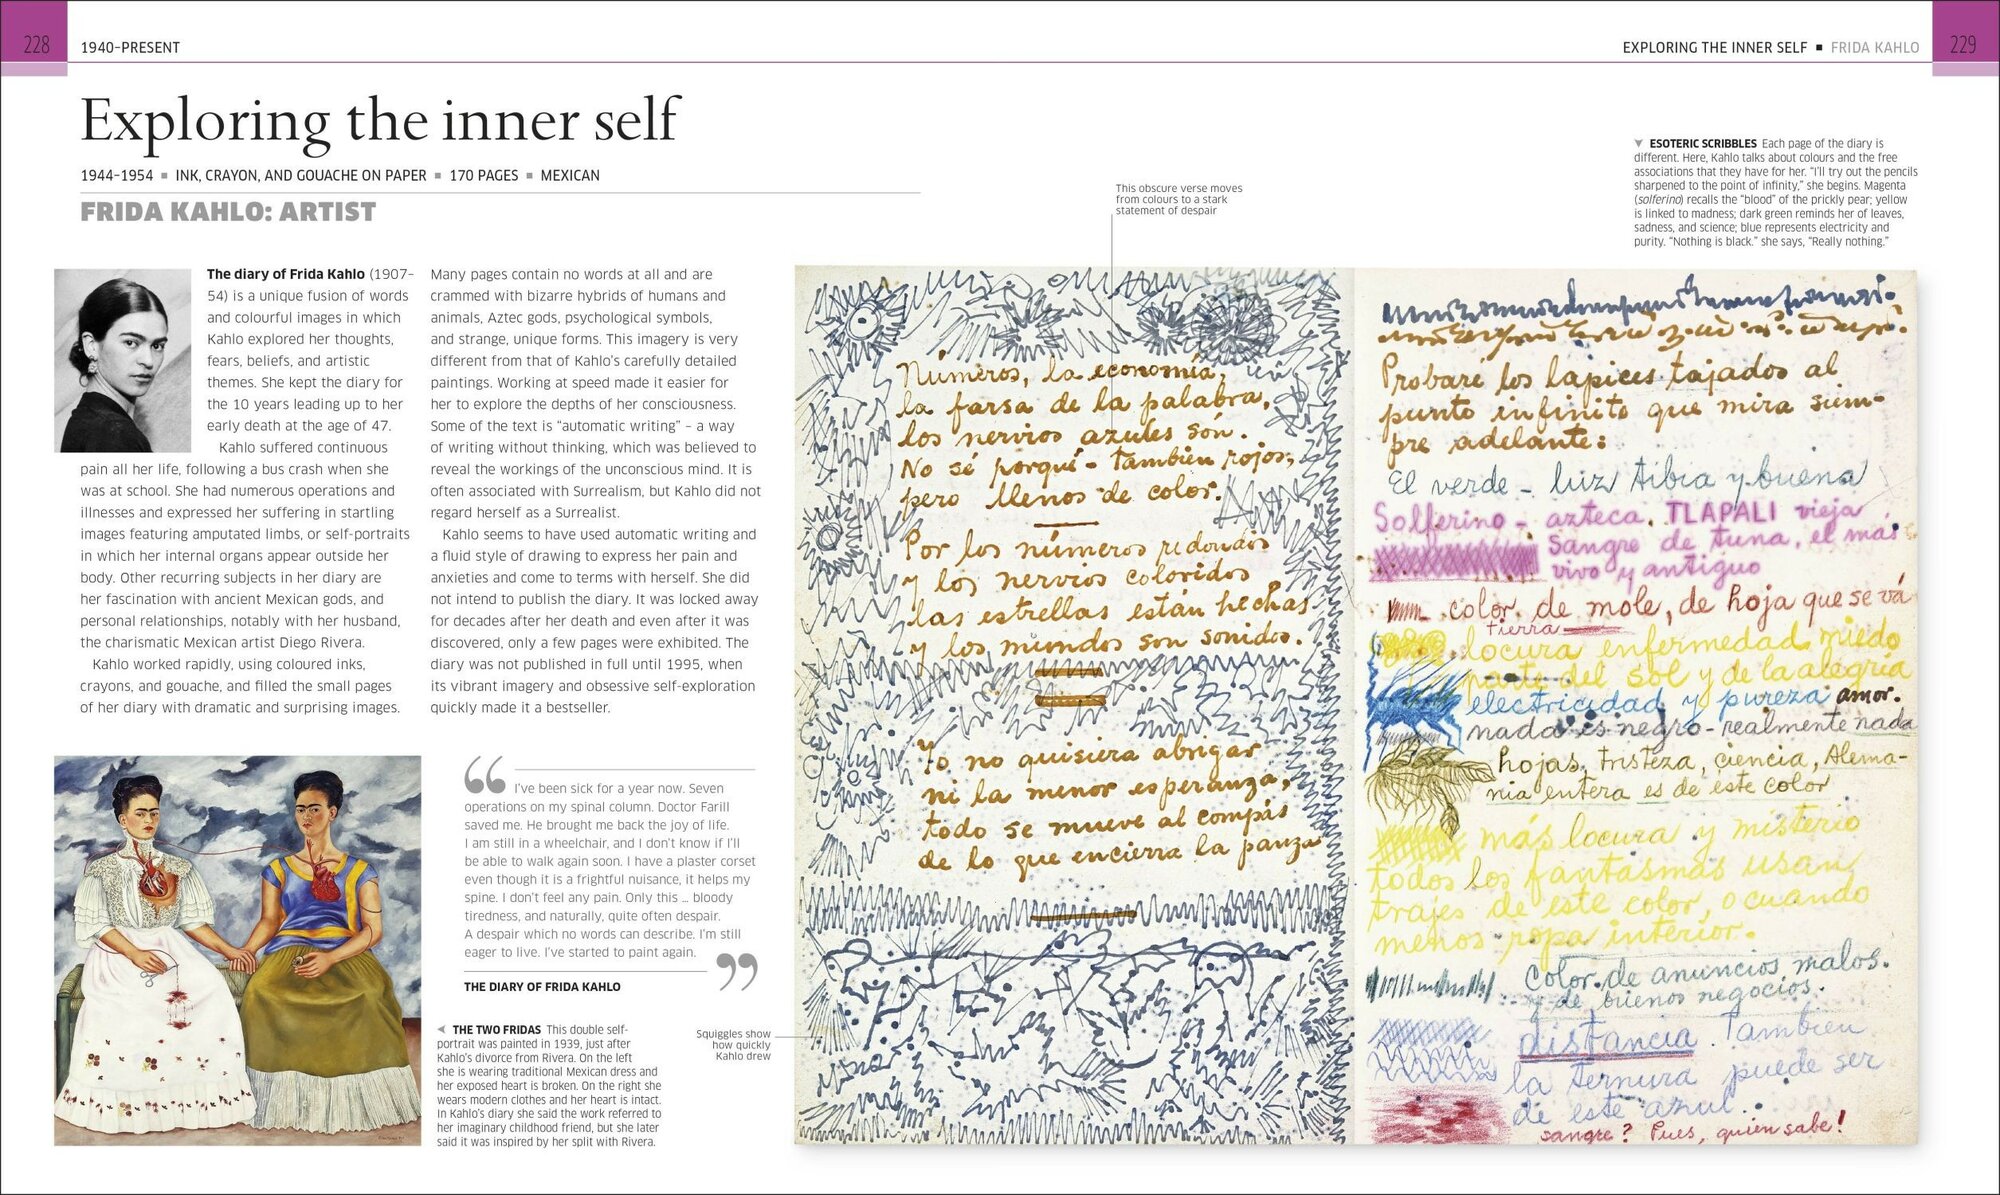 228
1940–PRESENT
EXPLORING THE INNER SELF ■ FRIDA KAHLO
229
Exploring the inner self
1944–1954 ■ INK, CRAYON, AND GOUACHE ON PAPER ■ 170 PAGES ■ MEXICAN
FRIDA KAHLO: ARTIST
The diary of Frida Kahlo (1907–
54) is a unique fusion of words
and colourful images in which
Kahlo explored her thoughts,
fears, beliefs, and artistic
themes. She kept the diary for
the 10 years leading up to her
early death at the age of 47.
Kahlo suffered continuous
pain all her life, following a bus crash when she
was at school. She had numerous operations and
illnesses and expressed her suffering in startling
images featuring amputated limbs, or self-portraits
in which her internal organs appear outside her
body. Other recurring subjects in her diary are
her fascination with ancient Mexican gods, and
personal relationships, notably with her husband,
the charismatic Mexican artist Diego Rivera.
Kahlo worked rapidly, using coloured inks,
crayons, and gouache, and filled the small pages
of her diary with dramatic and surprising images.
Many pages contain no words at all and are
crammed with bizarre hybrids of humans and
animals, Aztec gods, psychological symbols,
and strange, unique forms. This imagery is very
different from that of Kahlo's carefully detailed
paintings. Working at speed made it easier for
her to explore the depths of her consciousness.
Some of the text is "automatic writing" – a way
of writing without thinking, which was believed to
reveal the workings of the unconscious mind. It is
often associated with Surrealism, but Kahlo did not
regard herself as a Surrealist.
Kahlo seems to have used automatic writing and
a fluid style of drawing to express her pain and
anxieties and come to terms with herself. She did
not intend to publish the diary. It was locked away
for decades after her death and even after it was
discovered, only a few pages were exhibited. The
diary was not published in full until 1995, when
its vibrant imagery and obsessive self-exploration
quickly made it a bestseller.
“ I've been sick for a year now. Seven
operations on my spinal column. Doctor Farill
saved me. He brought me back the joy of life.
I am still in a wheelchair, and I don't know if I'll
be able to walk again soon. I have a plaster corset
even though it is a frightful nuisance, it helps my
spine. I don't feel any pain. Only this ... bloody
tiredness, and naturally, quite often despair.
A despair which no words can describe. I'm still
eager to live. I've started to paint again. ”
THE DIARY OF FRIDA KAHLO
◄ THE TWO FRIDAS This double self-
portrait was painted in 1939, just after
Kahlo's divorce from Rivera. On the left
she is wearing traditional Mexican dress and
her exposed heart is broken. On the right she
wears modern clothes and her heart is intact.
In Kahlo's diary she said the work referred to
her imaginary childhood friend, but she later
said it was inspired by her split with Rivera.
This obscure verse moves
from colours to a stark
statement of despair
Squiggles show
how quickly
Kahlo drew
▼ ESOTERIC SCRIBBLES Each page of the diary is
different. Here, Kahlo talks about colours and the free
associations that they have for her. "I'll try out the pencils
sharpened to the point of infinity," she begins. Magenta
(solferino) recalls the "blood" of the prickly pear; yellow
is linked to madness; dark green reminds her of leaves,
sadness, and science; blue represents electricity and
purity. "Nothing is black." she says, "Really nothing."
Números, la economía,
la farsa de la palabra,
los nervios azules son.
No sé porqué - también rojos,
pero llenos de color.
Por los números redondos
y los nervios coloridos
las estrellas están hechas
y los mundos son sonidos.
Yo no quisiera abrigar
ni la menor esperanza,
todo se mueve al compás
de lo que encierra la panza
Probaré los lápices tajados al
punto infinito que mira siem-
pre adelante:
El verde - luz tibia y buena
Solferino - azteca. TLAPALI vieja
sangre de tuna, el más
vivo y antiguo
color de mole, de hoja que se vá
tierra
locura enfermedad miedo
parte del sol y de la alegría
electricidad y pureza amor.
nada es negro - realmente nada
hojas, tristeza, ciencia, Alema-
nia entera es de éste color
más locura y misterio
todos los fantasmas usan
trajes de este color, o cuando
menos ropa interior.
color de anuncios malos.
y de buenos negocios.
distancia. También
la ternura puede ser
de este azul.
sangre? Pues, quien sabe!